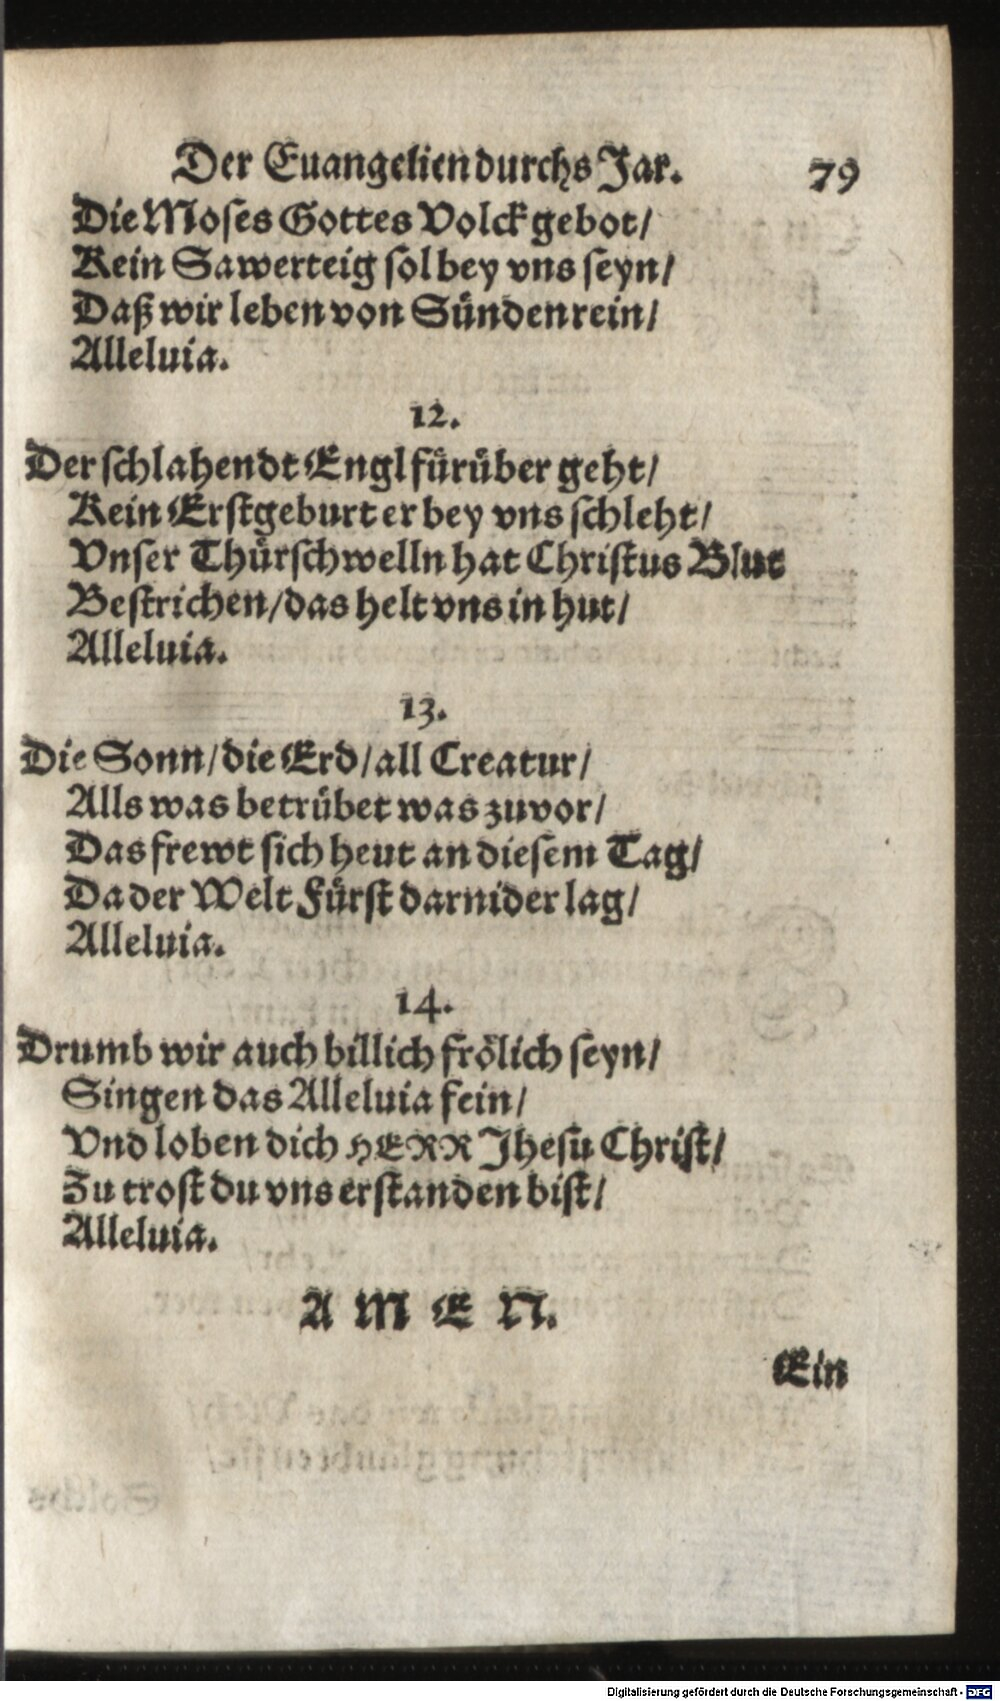 Der Euangelien durchs Jar. 79
Die Moses Gottes Volck gebot/
Kein Sawerteig sol bey vns seyn/
Daß wir leben von Sünden rein/
Alleluia.
12.
Der schlahendt Engl fürüber geht/
Kein Erstgeburt er bey vns schleht/
Vnser Thürschwelln hat Christus Blut
Bestrichen/ das helt vns in hut/
Alleluia.
13.
Die Sonn/ die Erd/ all Creatur/
Alls was betrübet was zuvor/
Das frewt sich heut an diesem Tag/
Da der Welt Fürst darnider lag/
Alleluia.
14.
Drumb wir auch billich frölich seyn/
Singen das Alleluia fein/
Vnd loben dich HERR Jhesu Christ/
Zu trost du vns erstanden bist/
Alleluia.
A M E N.
Ein
Digitalisierung gefördert durch die Deutsche Forschungsgemeinschaft - DFG